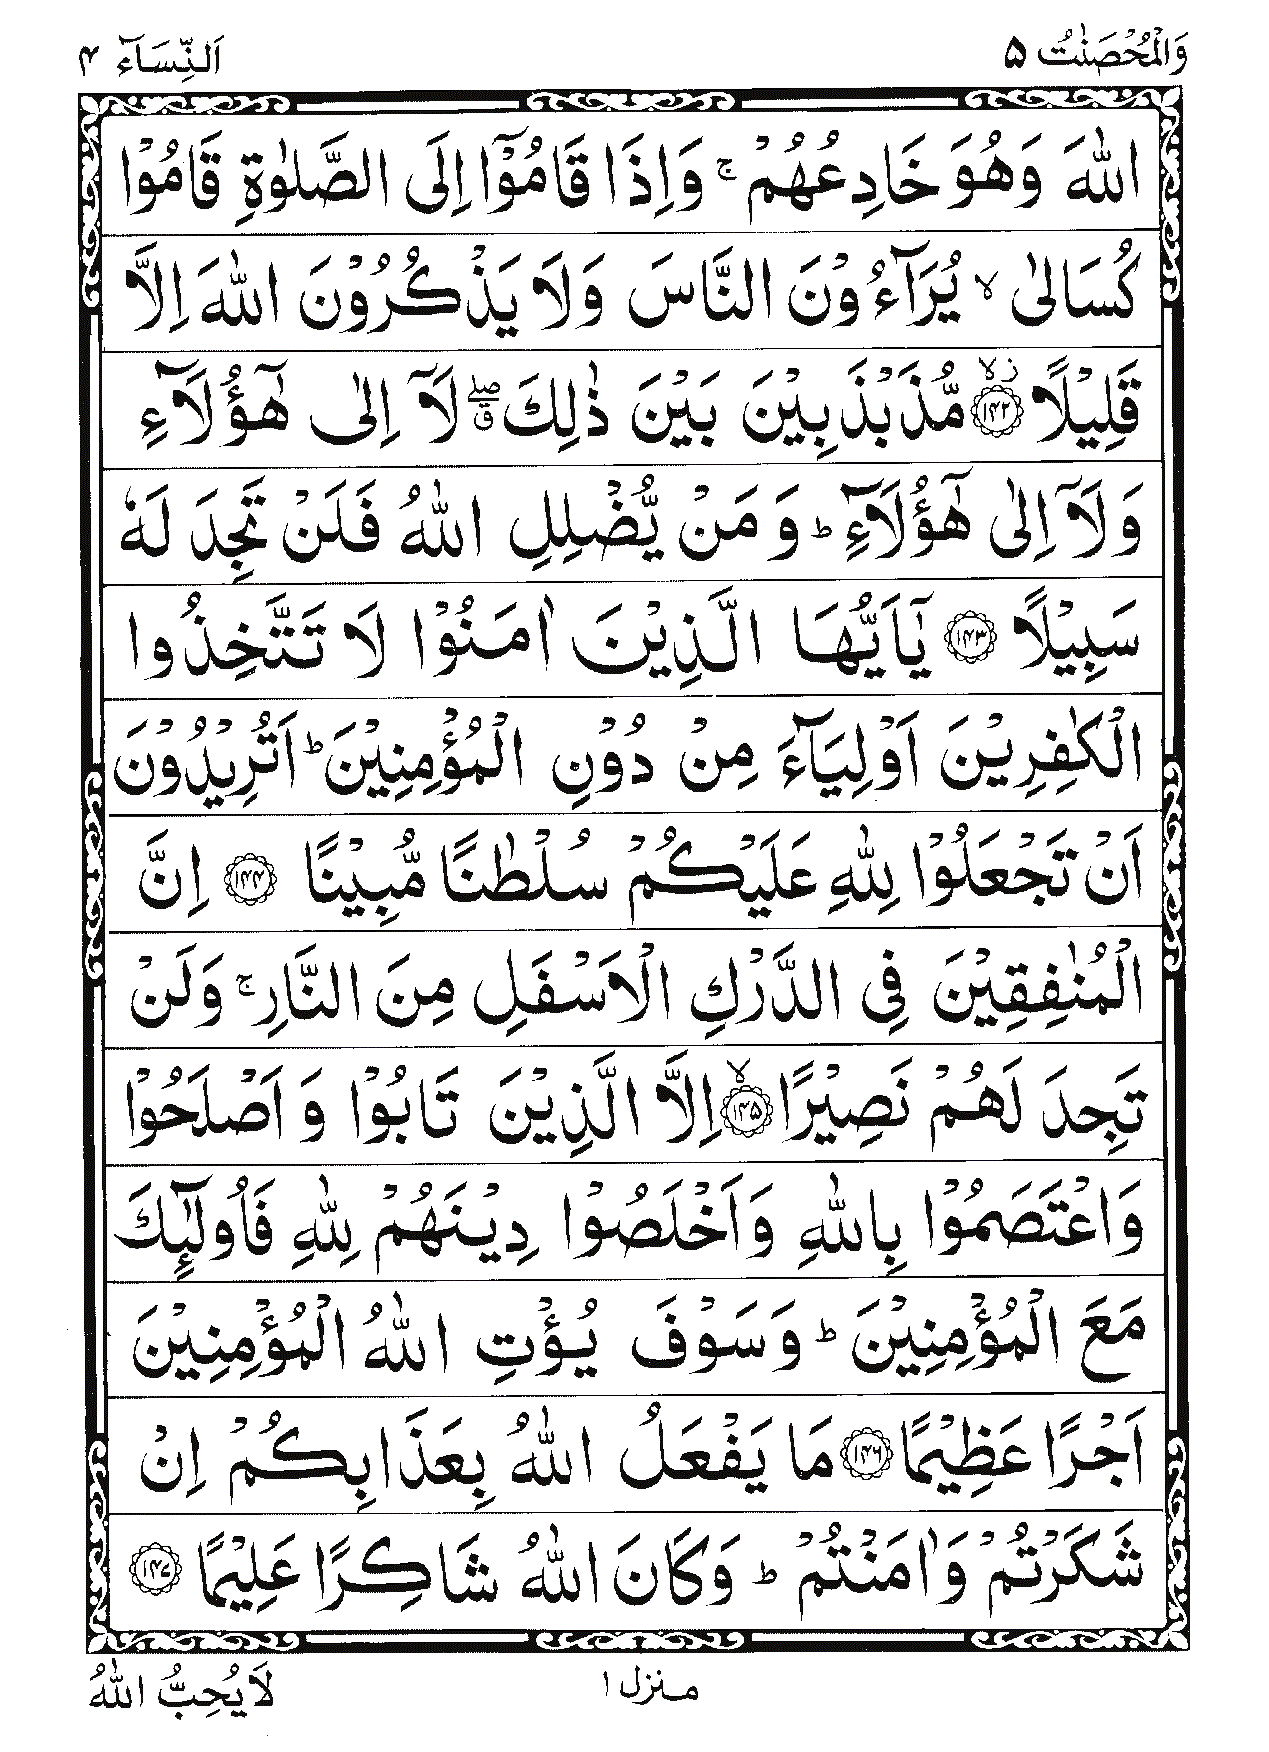 وَالْمُحْصَنٰتُ ۵
اَلنِّسَآء ۴
اللّٰهَ وَهُوَ خَادِعُهُمْ ۚ وَاِذَا قَامُوْۤا اِلَى الصَّلٰوةِ قَامُوْا
كُسَالٰى ۙ يُرَآءُوْنَ النَّاسَ وَلَا يَذْكُرُوْنَ اللّٰهَ اِلَّا
قَلِيْلًا ﴿۱۴۲﴾ مُّذَبْذَبِيْنَ بَيْنَ ذٰلِكَ ۖق لَاۤ اِلٰى هٰۤؤُلَآءِ
وَلَاۤ اِلٰى هٰۤؤُلَآءِ ؕ وَ مَنْ يُّضْلِلِ اللّٰهُ فَلَنْ تَجِدَ لَهٗ
سَبِيْلًا ﴿۱۴۳﴾ يٰۤاَيُّهَا الَّذِيْنَ اٰمَنُوْا لَا تَتَّخِذُوا
الْكٰفِرِيْنَ اَوْلِيَآءَ مِنْ دُوْنِ الْمُؤْمِنِيْنَ ؕ اَتُرِيْدُوْنَ
اَنْ تَجْعَلُوْا لِلّٰهِ عَلَيْكُمْ سُلْطٰنًا مُّبِيْنًا ﴿۱۴۴﴾ اِنَّ
الْمُنٰفِقِيْنَ فِى الدَّرْكِ الْاَسْفَلِ مِنَ النَّارِ ۚ وَلَنْ
تَجِدَ لَهُمْ نَصِيْرًا ﴿۱۴۵﴾ۙ اِلَّا الَّذِيْنَ تَابُوْا وَ اَصْلَحُوْا
وَاعْتَصَمُوْا بِاللّٰهِ وَاَخْلَصُوْا دِيْنَهُمْ لِلّٰهِ فَاُولٰٓئِكَ
مَعَ الْمُؤْمِنِيْنَ ؕ وَسَوْفَ يُؤْتِ اللّٰهُ الْمُؤْمِنِيْنَ
اَجْرًا عَظِيْمًا ﴿۱۴۶﴾ مَا يَفْعَلُ اللّٰهُ بِعَذَابِكُمْ اِنْ
شَكَرْتُمْ وَاٰمَنْتُمْ ؕ وَكَانَ اللّٰهُ شَاكِرًا عَلِيْمًا ﴿۱۴۷﴾
منزل ۱
لَا يُحِبُّ اللّٰهُ